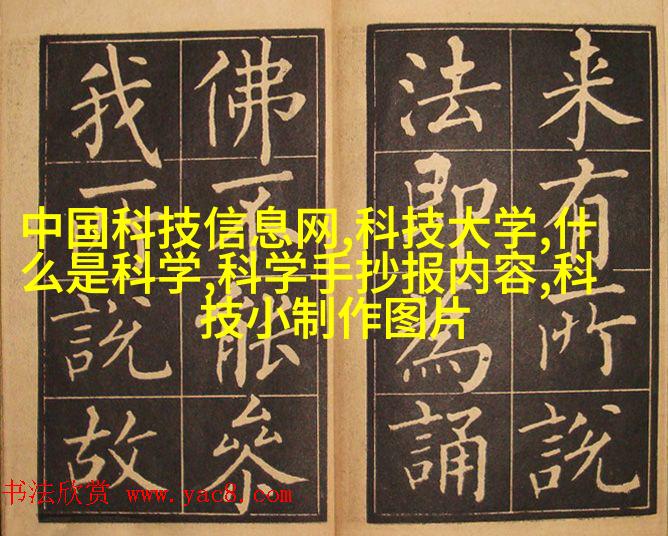 来有所說
法即為誦
佛不能叅
我所說故
中国科技信息网,科技大学,什
么是科学,科学手抄报内容,科
技小制作图片
书法欣赏 www.yac8.com